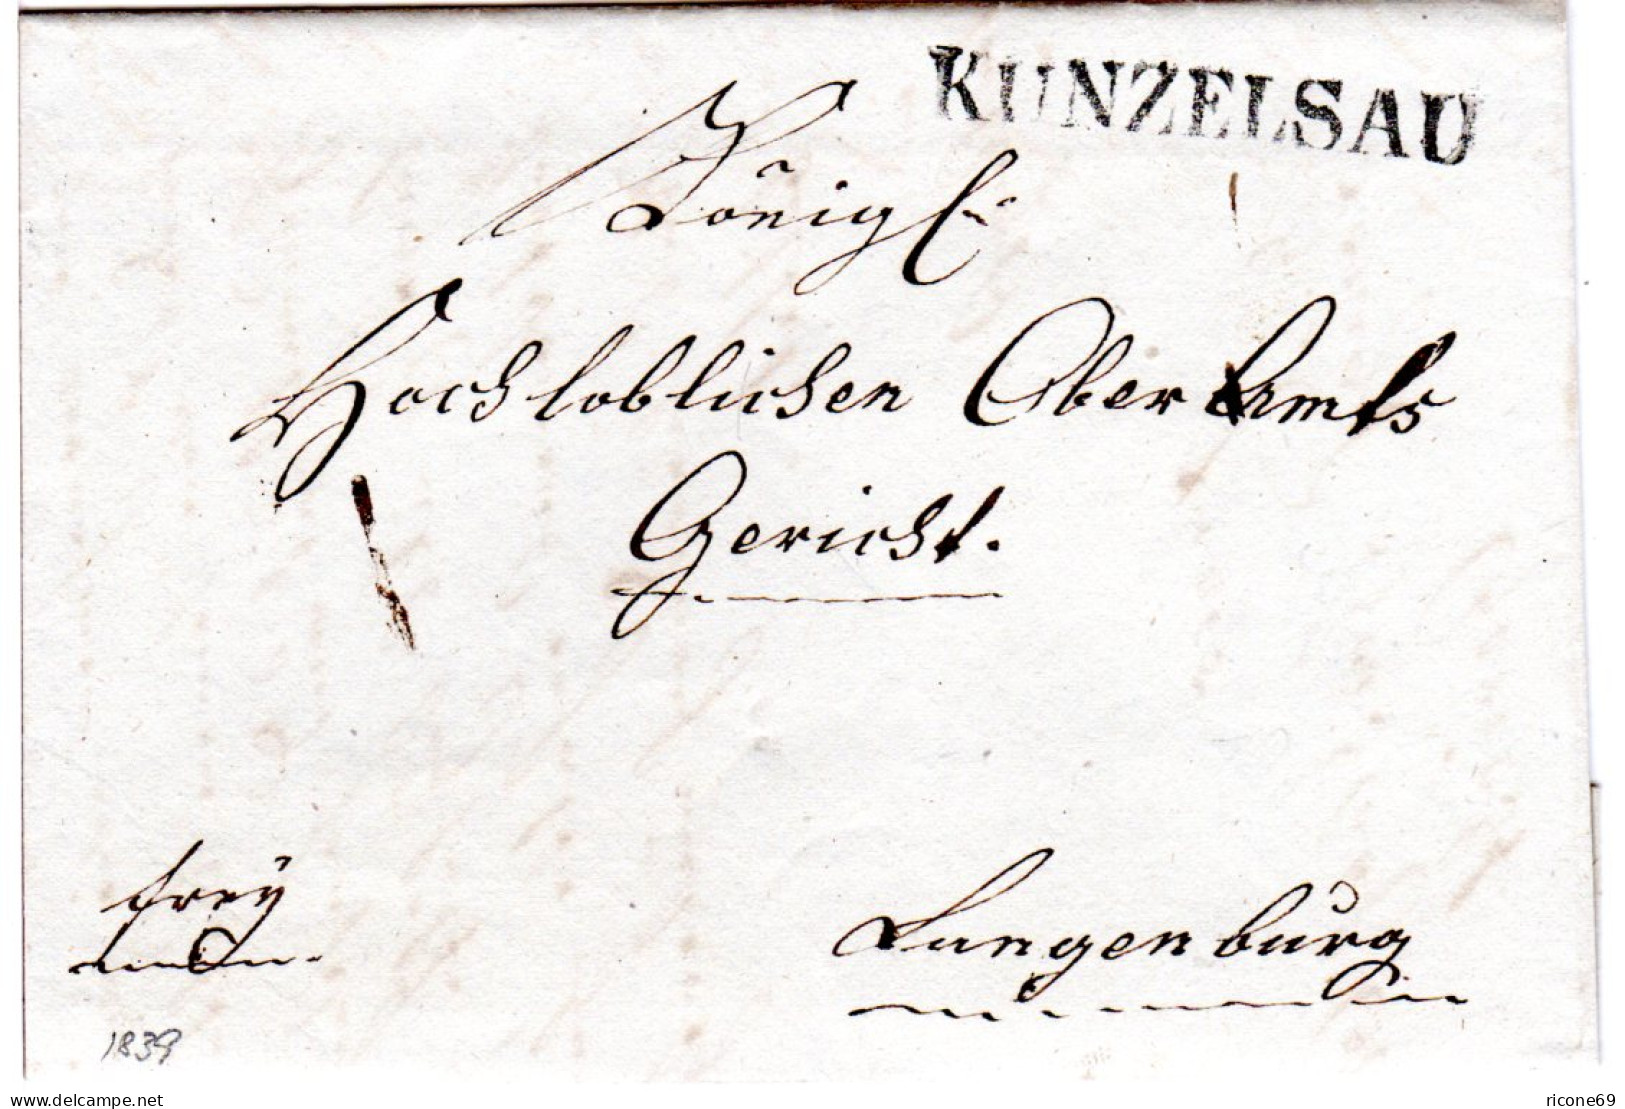 KUNZELSAU
Königl.
Hochloblichen Ober Amts
Gericht.
frey
Langenburg
1839
www.delcampe.net
ricone69